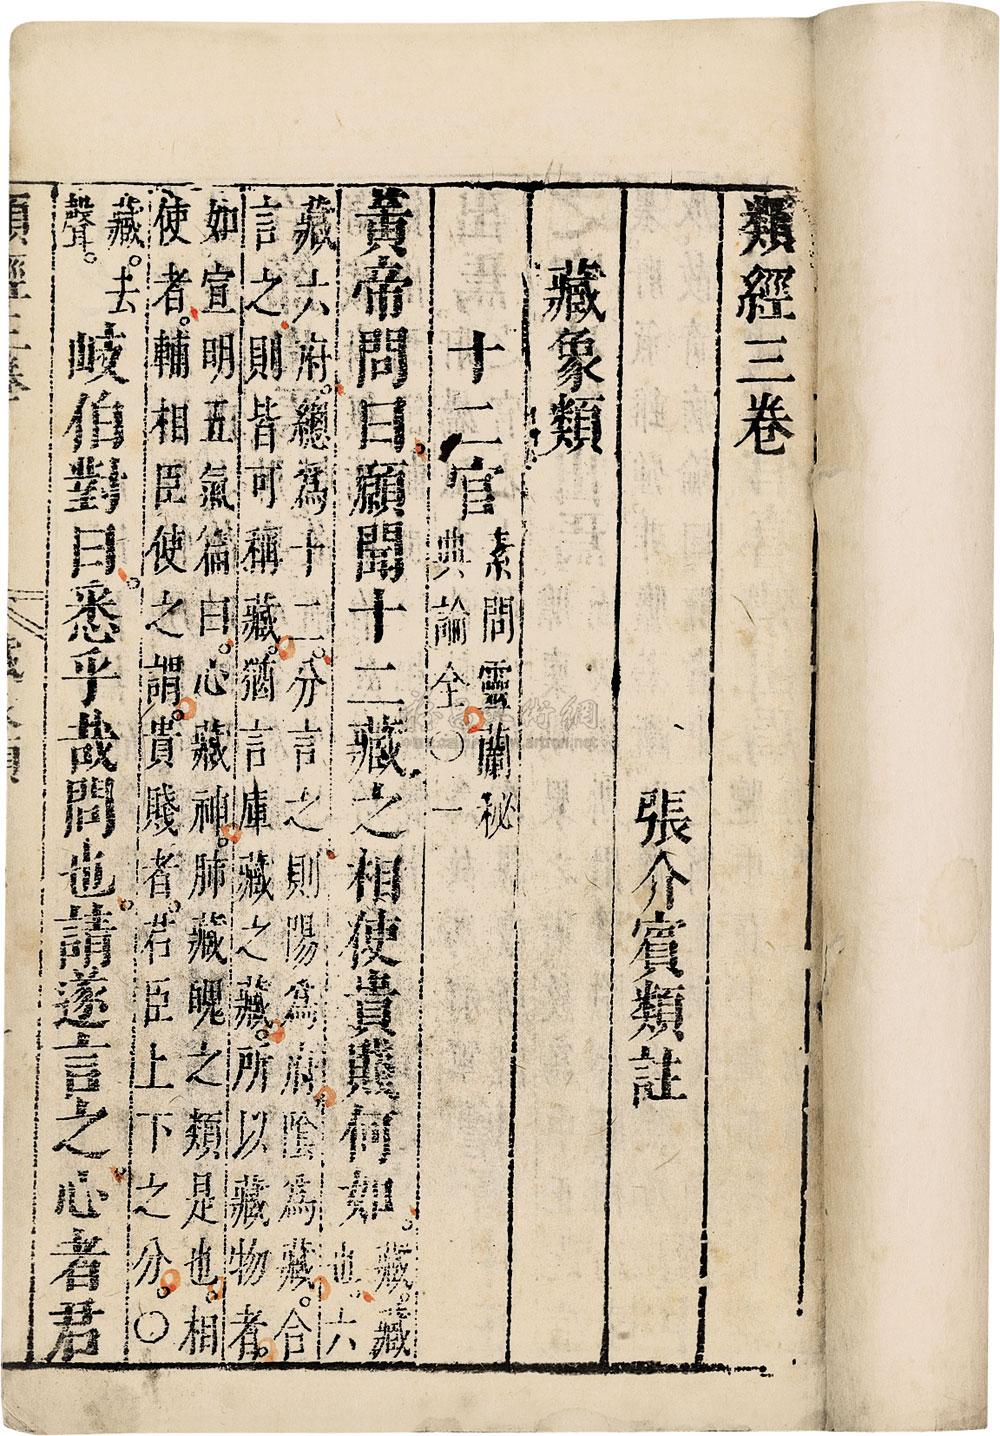 類經三卷
張介賓類註
藏象類
十二官
素問靈蘭秘
典論全〇一
黃帝問曰願聞十二藏之相使貴賤何如。
藏。藏
也。六
藏六府。總為十二。分言之則陽為府陰為藏。合
言之則皆可稱藏。猶言庫藏之藏。所以藏物者。
如宣明五氣篇曰。心藏神。肺藏魄之類是也。相
使者。輔相臣使之謂。貴賤者。君臣上下之分。〇
藏。去
聲。
岐伯對曰。悉乎哉問也。請遂言之心者君